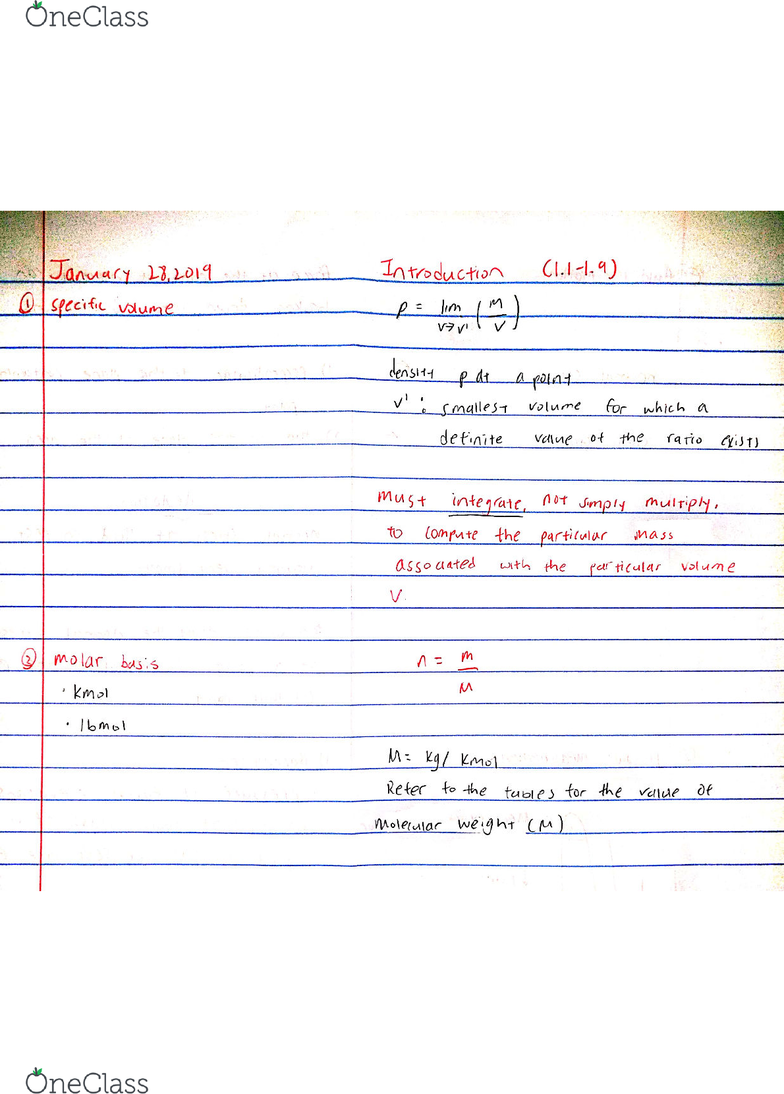 OneClass
January 28, 2019 Introduction (1.1-1.9)
① specific volume ρ = lim V→V' (m/V)
density ρ at a point
V' : smallest volume for which a
definite value of the ratio exists
must integrate, not simply multiply,
to compute the particular mass
associated with the particular volume
V
② molar basis n = m/M
• kmol
• lbmol
M = kg/kmol
Refer to the tables for the value of
Molecular weight (M)
OneClass